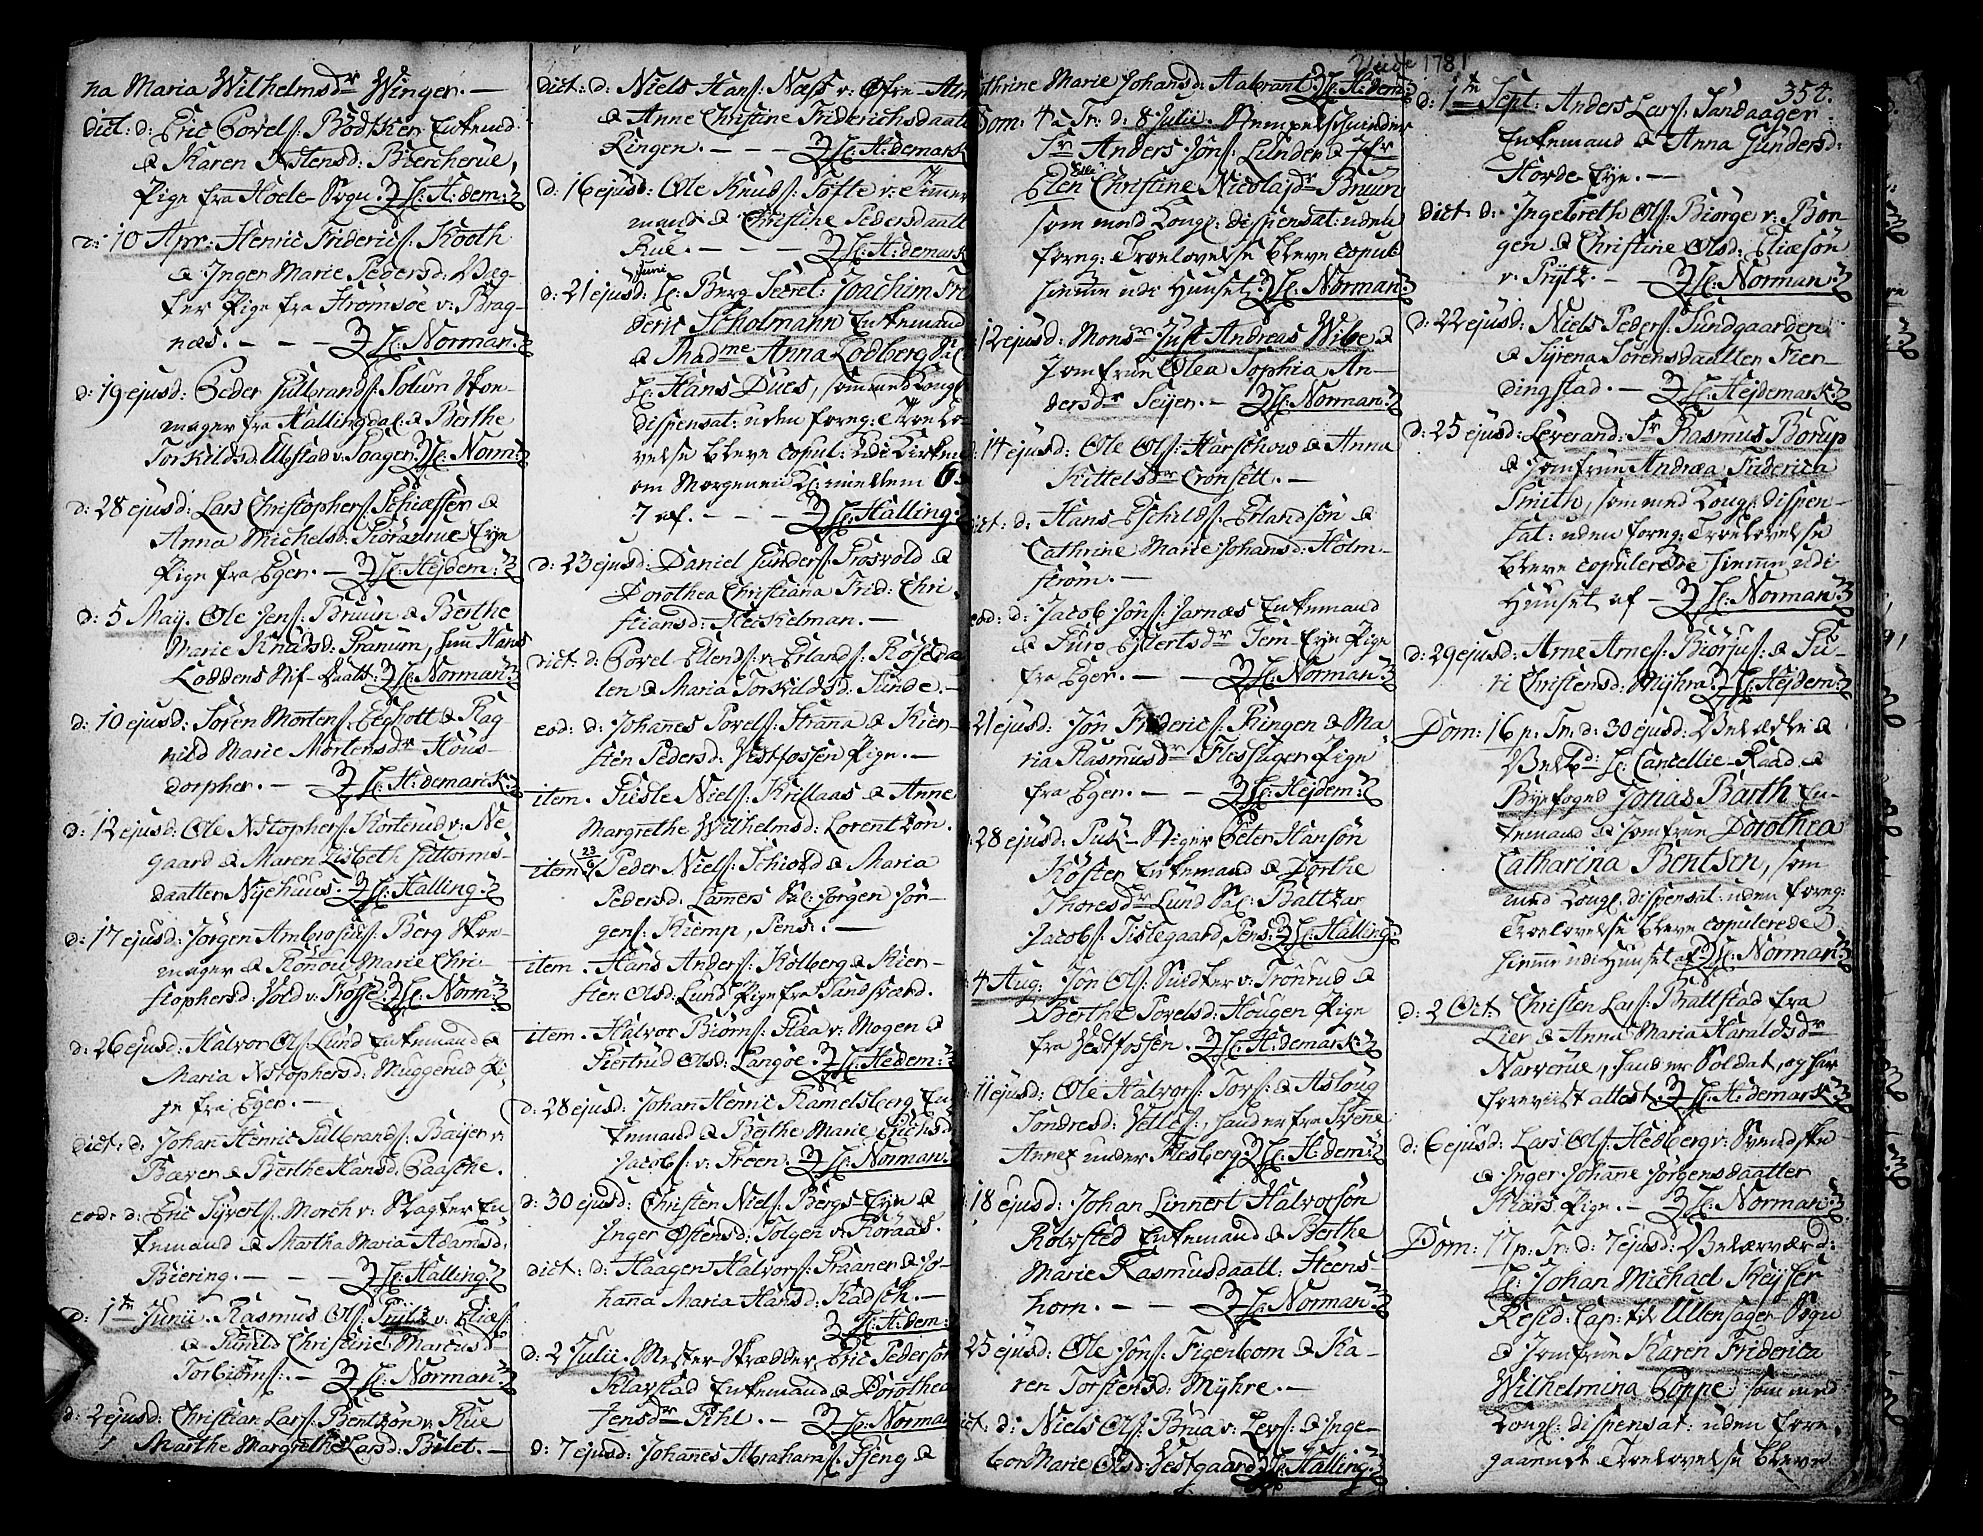 na Maria Wilhelmsdr Winger. —
dict: d: Eric Povels: Bödtker Enkemd:
& Karen Østensd: Biercherüe,
Pige fra Hoele Sogn. Hr: H:dem:
d: 10 Apr: Henric Frideric: Kooth
& Inger Marie Pedersd: Væg
ter Pige fra Strömsöe v: Brag-
næs. — — — Hr: Norman:
d: 19 ejusd: Peder Gulbrands: Solum Skoe-
mager fra Hallingdal: & Berthe
Torkildsd: Ulstad v: Saager. Hr: Norm:
d: 28 ejusd: Lars Christophers:
Anna Michelsd: Eye
Pige fra Eger. — Hr: Hejdem:
d: 5 Maij. Ole Jens: Bruun & Berthe
Marie Knudsd: Hans
Loddens Stif-Daatt: Hr: Norman:
d: 10 ejusd: Sören Mortens: & Rag-
nild Marie Mortensdr Hous-
dorpher. — Hr: H:demarck:
d: 12 ejusd: Ole Nstophers: v: Ne-
gaard & Maren Lisbeth Guttorms-
daatter Nyehuus. Hr: Halling:
d: 17 ejusd: Jörgen Ambrosius: Berg Skoe-
mager & Marie Chri-
stophersd: Vold v: Hr: Norm:
d: 26 ejusd: Halvor Ols: Lund Enkemand &
Maria Nstophersd: Muggerud Pi-
ge fra Eger. —
dict: d: Johan Henric Gulbrands: Baijer v:
Bæver & Berthe Hansd: Paasche.
eod: d: Eric Syverts: Morch v: Slagter En-
kemand & Martha Maria Adamsd:
Biering. — — — Hr: Halling:
d: 1te Junii. Rasmus Ols: Prytz v: Eliæs:
& Gunild Christine Marcusd:
Torbiörns: — Hr: Norman:
d: 2 ejusd: Christian Lars: Bentzön v: Rue
& Marthe Margrethe Larsd: Bilet. —
dict: d: Niels Hans: Næss v: Øfre-
& Anne Christine Friderichsdaatt
Ringen. — — — Hr: H:demark
d: 16 ejusd: Ole Knuds: Tofte v: Timer-
mand & Christine Pedersdaatt
Rue. — — — Hr: H:demark
d: 21 ejusd: Juni Hr: Berg Secret: Joachim Fri
deric Stholmann Enkemand
& Madme Anna Lodberg Sal:
Hr: Hans Dues, som med Kongl:
dispensat: uden foreg: Troelo-
velse bleve copul: udi Kirken
om Morgenen Kl: imellem 6 &
7 af. — — — Hr: Halling:
d: 23 ejusd: Daniel Gunders: Frosvold &
Dorothea Christiana Frid: Chri-
stiansd: Heickelman. —
dict: d: Povel Ellends: v: Erlands: Roseda
len & Maria Torkildsd: Sunde. —
eod: d: Johanes Povels: Strana & Kier-
sten Pedersd: Vestfossen Pige. —
item. Gisle Niels: Krillaas & Anne
Margrethe Wilhelmsd: Lorentzön.
item 23/6 Peder Niels: Schiold & Maria
Pedersd: Lamers Sal: Jörgen Jör-
gens: Kiemp, Pens: —
item. Hans Anders: Kolberg & Kier-
sten Olsd: Lund Pige fra Sandsværd.
item. Halvor Biörns: Flaa v: Mogen &
Giertrud Olsd: Langöe. Hr: Hedem:
d: 28 ejusd: Johan Henric Ramelsberg En-
kemand & Berthe Marie Erichsd:
Jacobs: v: Treen Hr: Norman:
d: 30 ejusd: Christen Niels: Bergs-Eye &
Inger Østensd: Tolgen v: Röraas.
dict: d: Haagen Halvors: Praanen & Jo-
hanna Maria Hansd: Kadsch.
Hr: H:dem:
d: 2 Julii. Mester-Skrædder Eric Pedersön
Klavstad Enkemand & Dorothea
Jensdr Pihl. — Hr: Norman
d: 7 ejusd: Johannes Abrahams: Gjeng &
Vide 1781
Cathrine Marie Johansd: Aabrant. Hr: H:dem:
Dom: 4 p: Tr: d: 8 Julii. Stempelskierder
Sr Anders Jöns: Lunder & Jfr
Elen Elle Christine Nicolajdr Bruun
som med Kongl: dispensat: uden
foreg: Troelovelse bleve copul:
hiemme udi Huuset. Hr: Norman:
12 ejusd: Monsr Just Andreas Wibe &
Jomfrue Olea Sophia An-
dersdr Seijer. — Hr: Norman:
14 ejusd: Ole Ols: Harschow & Anna
Kittelsdr Cronsett. —
dict: d: Hans Eschilds: Erlandsön &
Cathrine Marie Johansd: Holm-
ström. —
eod: d: Jacob Jöns: Jarnæs Enkemand
& Guro Ejvertsdr Tem-Eye Pige
fra Eger. — — Hr: Norman:
21 ejusd: Jön Frideric: Ringen & Ma-
ria Rasmusdr Flesager Pige
fra Eger. — — Hr: Hejdem:
28 ejusd: Puk-Stiger Peter Hansön
Köster Enkemand & Dorthe
Thoresdr Lund Sal: Baltzar
Jacobs: Tislegaard, Pens: Hr: Halling:
4 Aug: Jön Ols: v: Trönrud &
Berthe Povelsd: Hougen Pige
fra Vestfossen. Hr: H:demark:
11 ejusd: Ole Halvors: Tors: & Asloug
Sondresd: Velle:, hand er fra Svene
Annex under Flesberg. Hr: H:dem:
18 ejusd: Johan Linnert Halvorsön
Rolvsted Enkemand & Berthe
Marie Rasmusdaatt: Heens-
horn. — — Hr: Norman:
25 ejusd: Ole Jöns: Figenbom & Ka-
ren Torstensd: Myhre. —
dict: d: Niels Ols: Brua v: Lers: & Inge-
bor Marie Olsd: Vestgaard. Hr: Halling:
354.
d: 1te Sept: Anders Lars: Sandaager
Enkemand & Anna Gundersd:
Horde-Eye. —
dict: d: Ingebreth Ols: Biörge v: Bon-
gen & Christine Olsd: Eliesön
v: Prytz. — Hr: Norman:
d: 22 ejusd: Niels Peders: Sundgaarden
& Syrena Sörensdaatter Fien-
dingstad. — Hr: Hejdemark:
d: 25 ejusd: Leverand: Sr Rasmus Borup
& Jomfrue Andrea Friderica
Smith, som med Kongl: dispen-
sat: uden foreg: Troelovelse
bleve copulerede hiemme udi
Huuset af — Hr: Norman:
d: 29 ejusd: Arne Arnes: Biörjus: & Gu-
ri Christensd: Myhra. Hr: Hejdem:
Dom: 16 p: Tr: d: 30 ejusd: Velædle &
Velbd: Hr: Cancellie-Raad &
Byefoged Jonas Barth En-
kemand & Jomfrue Dorothea
Catharina Bentsen, som
med Kongl: dispensat: uden foreg:
Troelovelse bleve copulerede
hiemme udi Huuset af Hr: Norman:
d: 2 Oct: Christen Lars: Brattstad fra
Lier & Anna Maria Haraldsdr
Narverüe, hand er Soldat, og har
foreviist attest. Hr: H:demark:
d: 6 ejusd: Lars Ols: Hedberg v: Svendske
& Inger Johanne Jörgensdaatter
Kiærs. Pige. — Hr: Norman:
Dom: 17 p: Tr: d: 7 ejusd: Velærværd:
Hr: Johan Michael Keyser
Resid: Cap: til Ullensager Sogn
& Jomfrue Karen Friderica
Wilhelmina Poppe som med
Kongl: dispensat: uden fore-
gaaende Troelovelse bleve